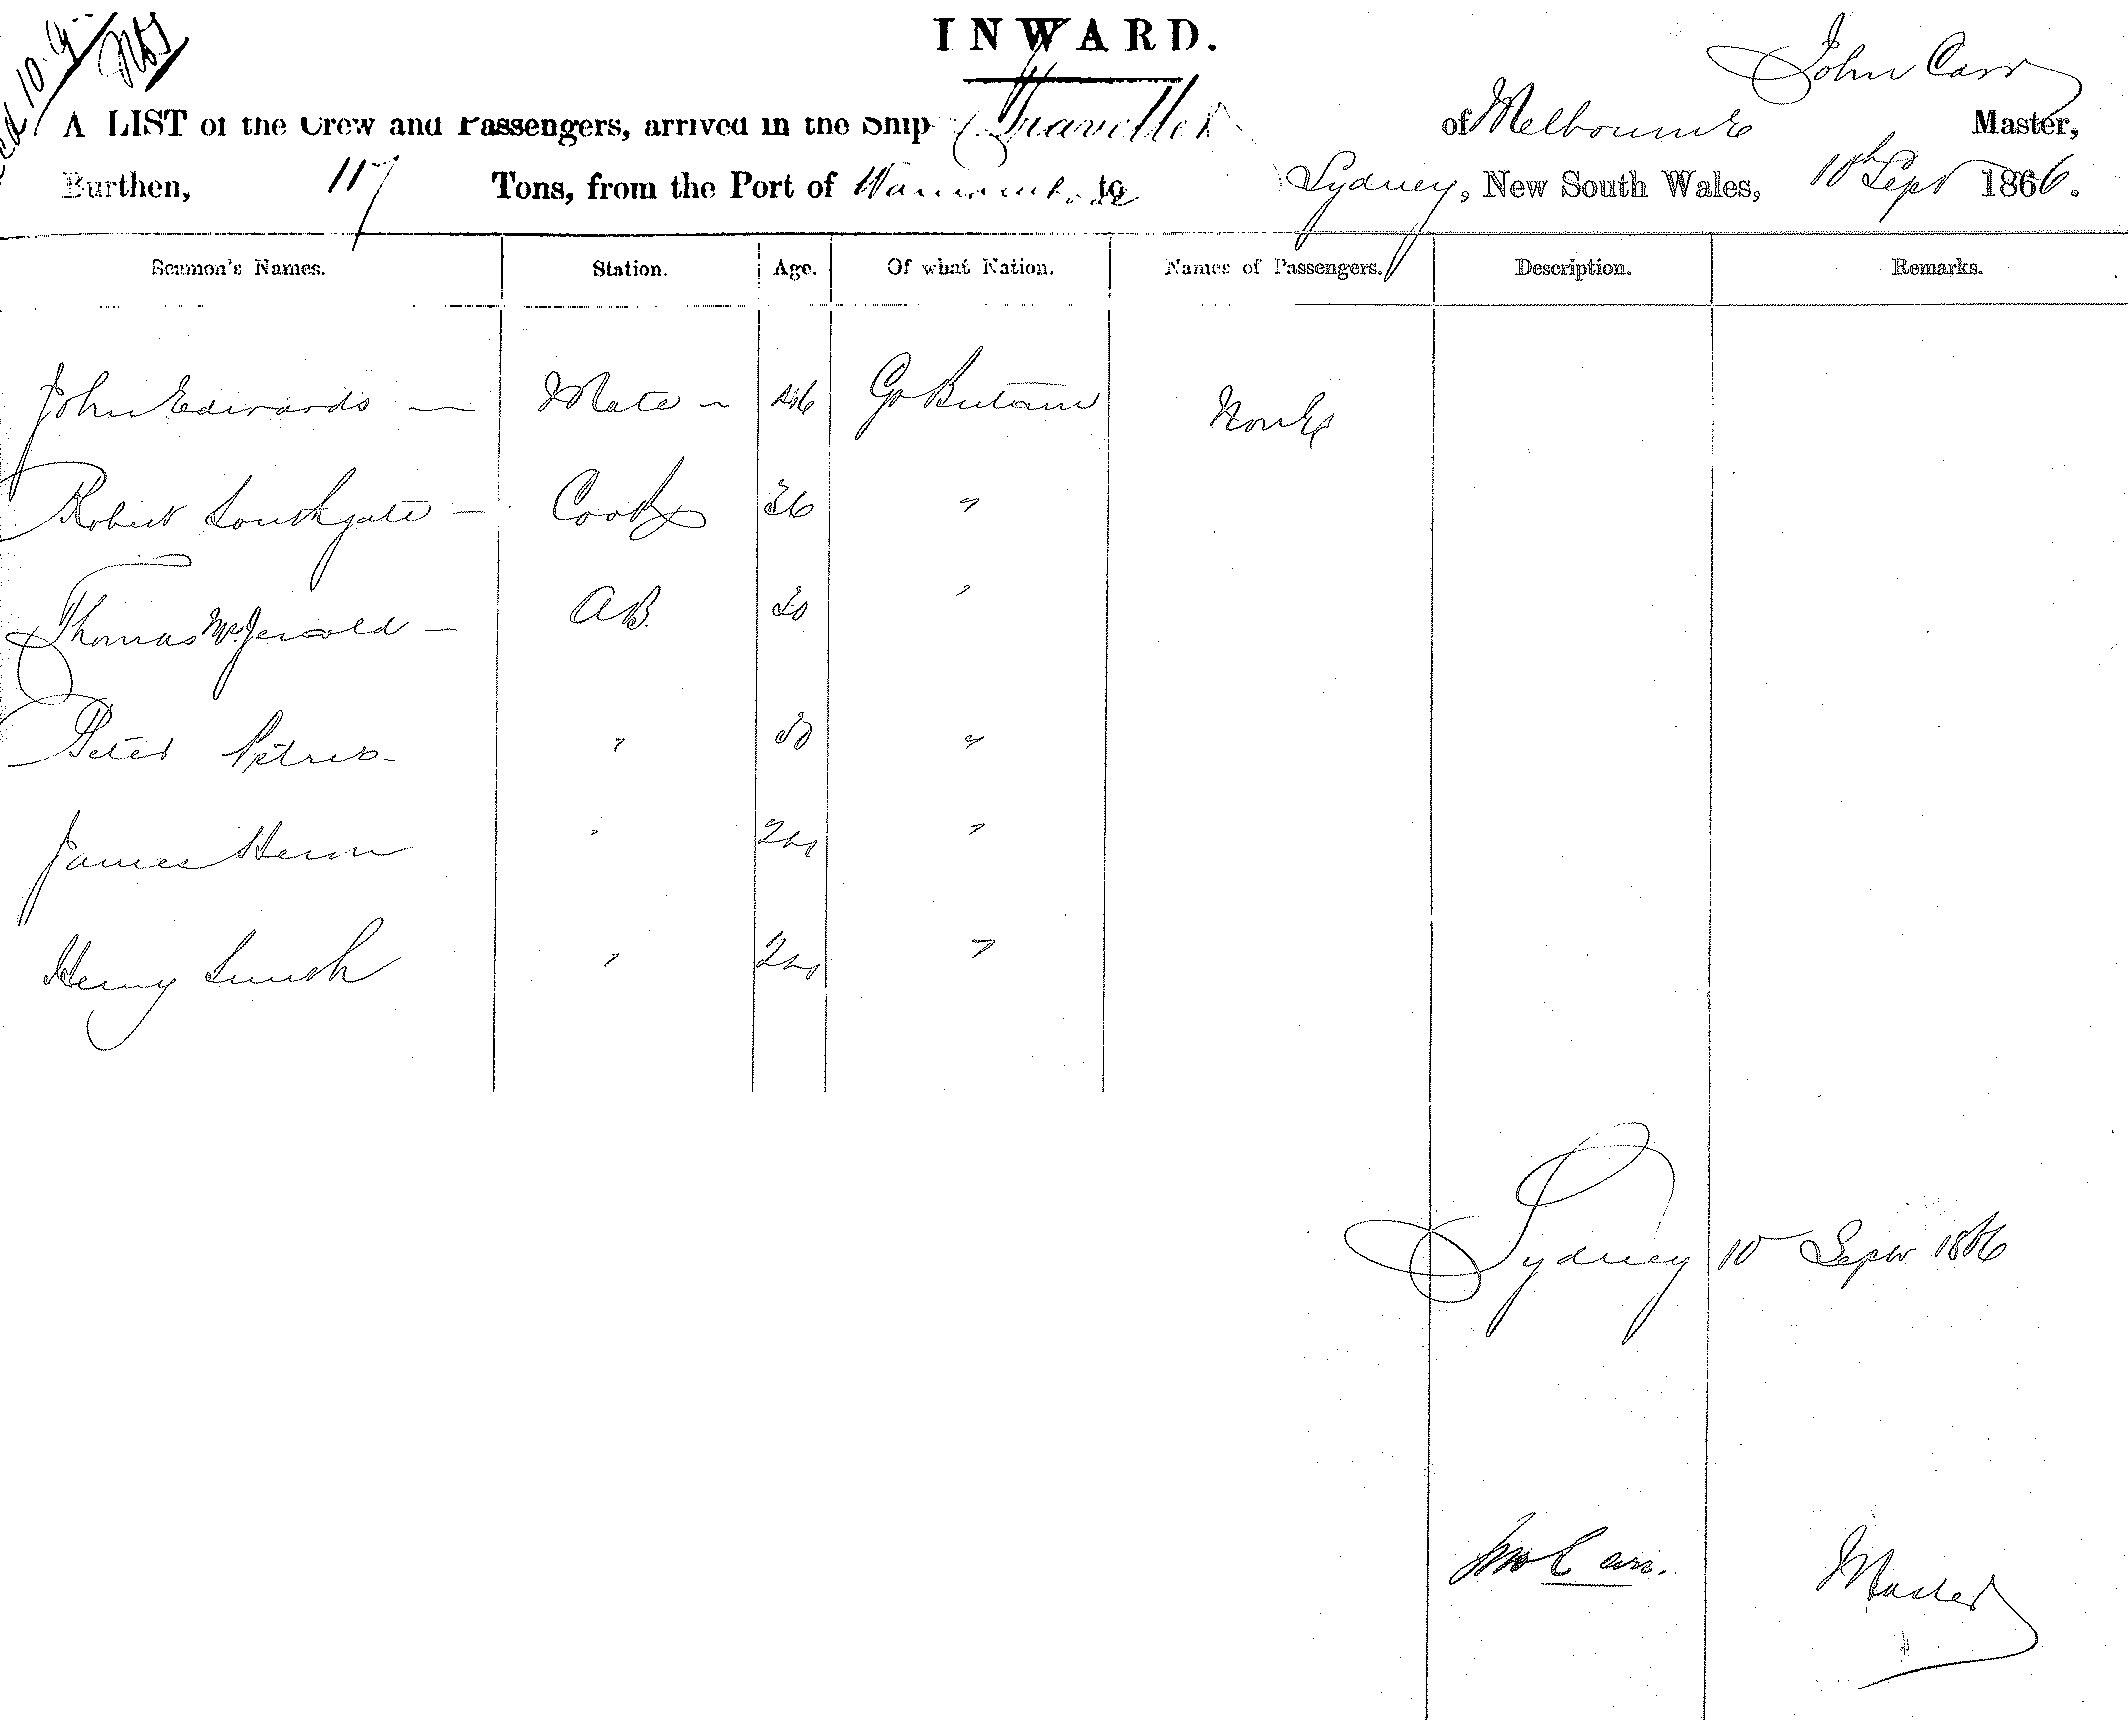 INWARD.
John Carr
A LIST of the Crew and Passengers, arrived in the Ship Traveller of Melbourne Master,
Burthen, 117 Tons, from the Port of to Sydney, New South Wales, 10th Sept 1866.
Seamen's Names. Station. Age. Of what Nation. Names of Passengers. Description. Remarks.
John Edwards — Mate - 46 Gt Britain None
Robert Southgate — Cook 36 "
Thomas McJerrold — AB. "
Peter Petrie - " "
James Heron " "
Henry " "
Sydney 10 Sepr 1866
Jno Carr. Master